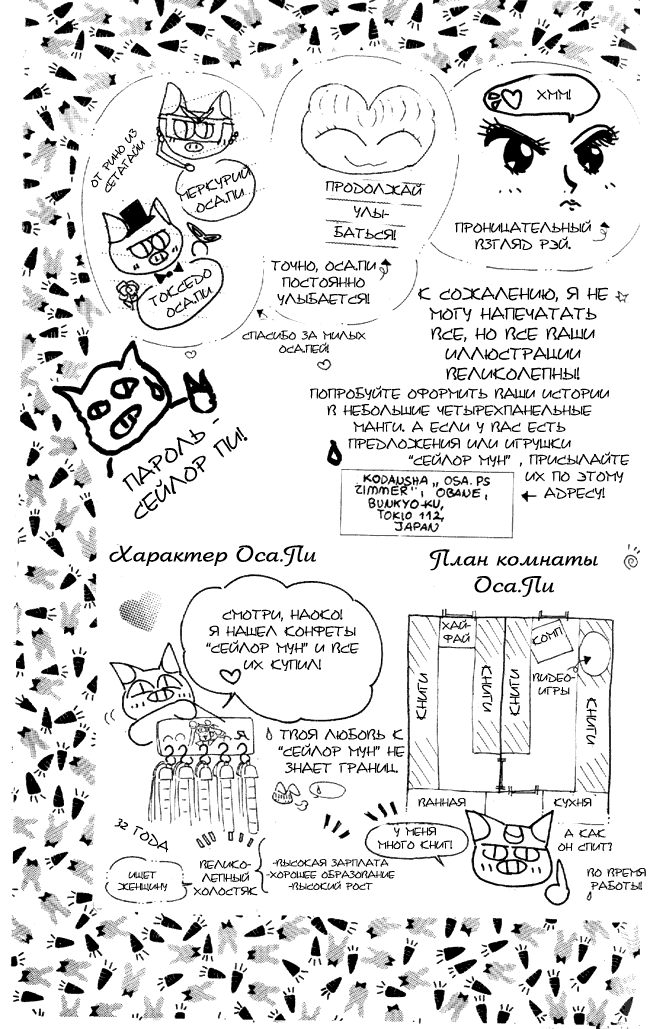 ОТ РИНО ИЗ
СЕТАГАЙИ
МЕРКУРИЙ
ОСА.ПИ
ТОКСЕДО
ОСА.ПИ
ПРОДОЛЖАЙ
УЛЫ-
БАТЬСЯ!
ТОЧНО, ОСА.ПИ
ПОСТОЯННО
УЛЫБАЕТСЯ!
ХММ!
ПРОНИЦАТЕЛЬНЫЙ
ВЗГЛЯД РЭЙ.
СПАСИБО ЗА МИЛЫХ
ОСА.ПЕЙ!
К СОЖАЛЕНИЮ, Я НЕ
МОГУ НАПЕЧАТАТЬ
ВСЕ, НО ВСЕ ВАШИ
ИЛЛЮСТРАЦИИ
ВЕЛИКОЛЕПНЫ!
ПАРОЛЬ -
СЕЙЛОР ПИ!
ПОПРОБУЙТЕ ОФОРМИТЬ ВАШИ ИСТОРИИ
В НЕБОЛЬШИЕ ЧЕТЫРЕХПАНЕЛЬНЫЕ
МАНГИ. А ЕСЛИ У ВАС ЕСТЬ
ПРЕДЛОЖЕНИЯ ИЛИ ИГРУШКИ
"СЕЙЛОР МУН", ПРИСЫЛАЙТЕ
ИХ ПО ЭТОМУ
АДРЕСУ!
KODANSHA „OSA.PS
ZIMMER", OBANE,
BUNKYO-KU,
TOKIO 112,
JAPAN
Характер Оса.Пи
СМОТРИ, НАОКО!
Я НАШЕЛ КОНФЕТЫ
"СЕЙЛОР МУН" И ВСЕ
ИХ КУПИЛ!
ТВОЯ ЛЮБОВЬ К
"СЕЙЛОР МУН" НЕ
ЗНАЕТ ГРАНИЦ.
32 ГОДА
ИЩЕТ
ЖЕНЩИНУ
ВЕЛИКО-
ЛЕПНЫЙ
ХОЛОСТЯК
-ВЫСОКАЯ ЗАРПЛАТА
-ХОРОШЕЕ ОБРАЗОВАНИЕ
-ВЫСОКИЙ РОСТ
План комнаты
Оса.Пи
ХАЙ-
ФАЙ
КОМП
ВИДЕО-
ИГРЫ
КНИГИ
КНИГИ
КНИГИ
КНИГИ
ВАННАЯ
КУХНЯ
У МЕНЯ
МНОГО КНИГ!
А КАК
ОН СПИТ?
ВО ВРЕМЯ
РАБОТЫ!